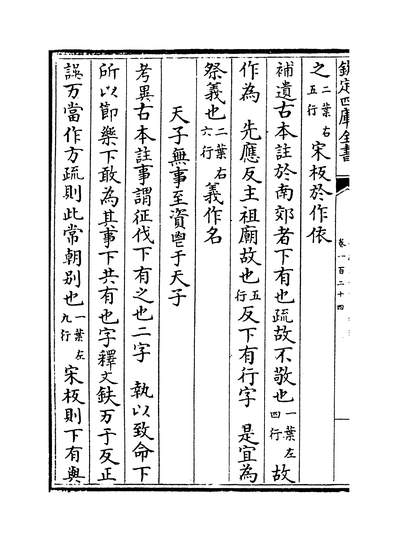 欽定四庫全書
卷一百二十四
之二葉右五行 宋板於作依
補遺古本註於南郊者下有也疏故不敬也一葉左四行 故
作為 先應反主祖廟故也五行 反下有行字 是宜為
祭義也二葉右六行 義作名
天子無事至資鬯于天子
考異古本註事謂征伐下有之也二字 執以致命下
所以節樂下敢為其事下共有也字釋文鈇万于反正
誤万當作方疏則此常朝别也一葉左九行 宋板則下有與